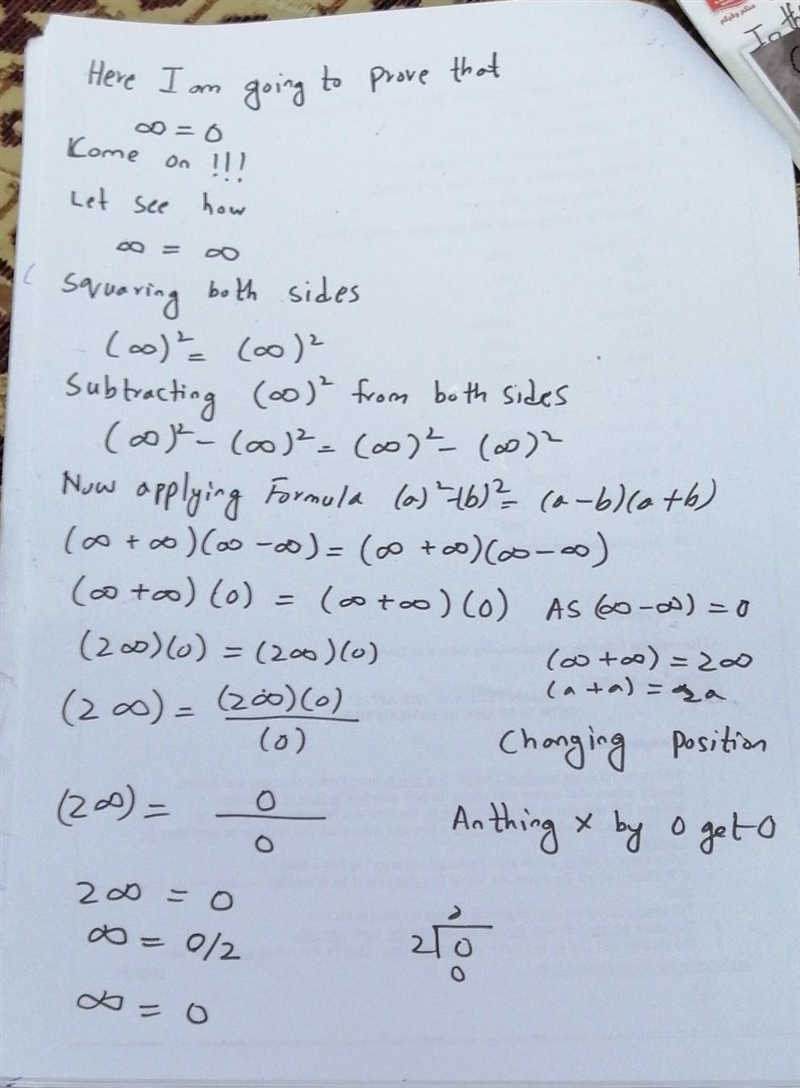 Here I am going to prove that
∞ = 0
Kome on !!!
Let see how
∞ = ∞
Squaring both sides
(∞)² = (∞)²
Subtracting (∞)² from both sides
(∞)² - (∞)² = (∞)² - (∞)²
Now applying Formula (a)²-(b)² = (a-b)(a+b)
(∞ + ∞)(∞ - ∞) = (∞ + ∞)(∞ - ∞)
(∞ + ∞) (0) = (∞ + ∞) (0) AS (∞ - ∞) = 0
(2∞)(0) = (2∞)(0) (∞ + ∞) = 2∞
(a + a) = 2a
(2∞) = (2∞)(0) / (0)
Changing Position
(2∞) = 0 / 0 Anthing × by 0 get 0
2∞ = 0
∞ = 0/2 2 0
0
∞ = 0
In th